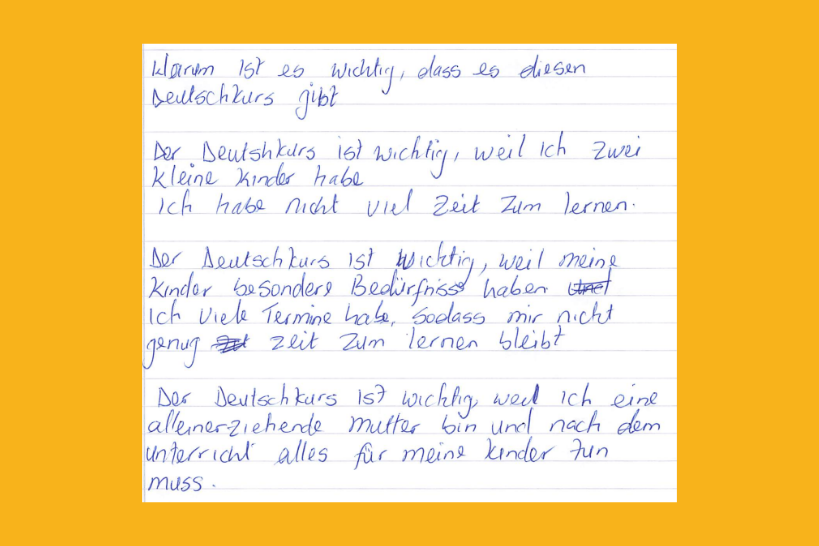 Warum ist es wichtig, dass es diesen
Deutschkurs gibt
Der Deutshkurs ist wichtig, weil ich zwei
kleine Kinder habe
Ich habe nicht viel Zeit zum lernen.
Der Deutschkurs ist wichtig, weil meine
Kinder besonders Bedürfnisse haben und
ich viele Termine habe, sodass mir nicht
genug zeit zum lernen bleibt
Der Deutschkurs ist wichtig, weil ich eine
alleinerziehende mutter bin und nach dem
unterricht alles für meine kinder tun
muss.